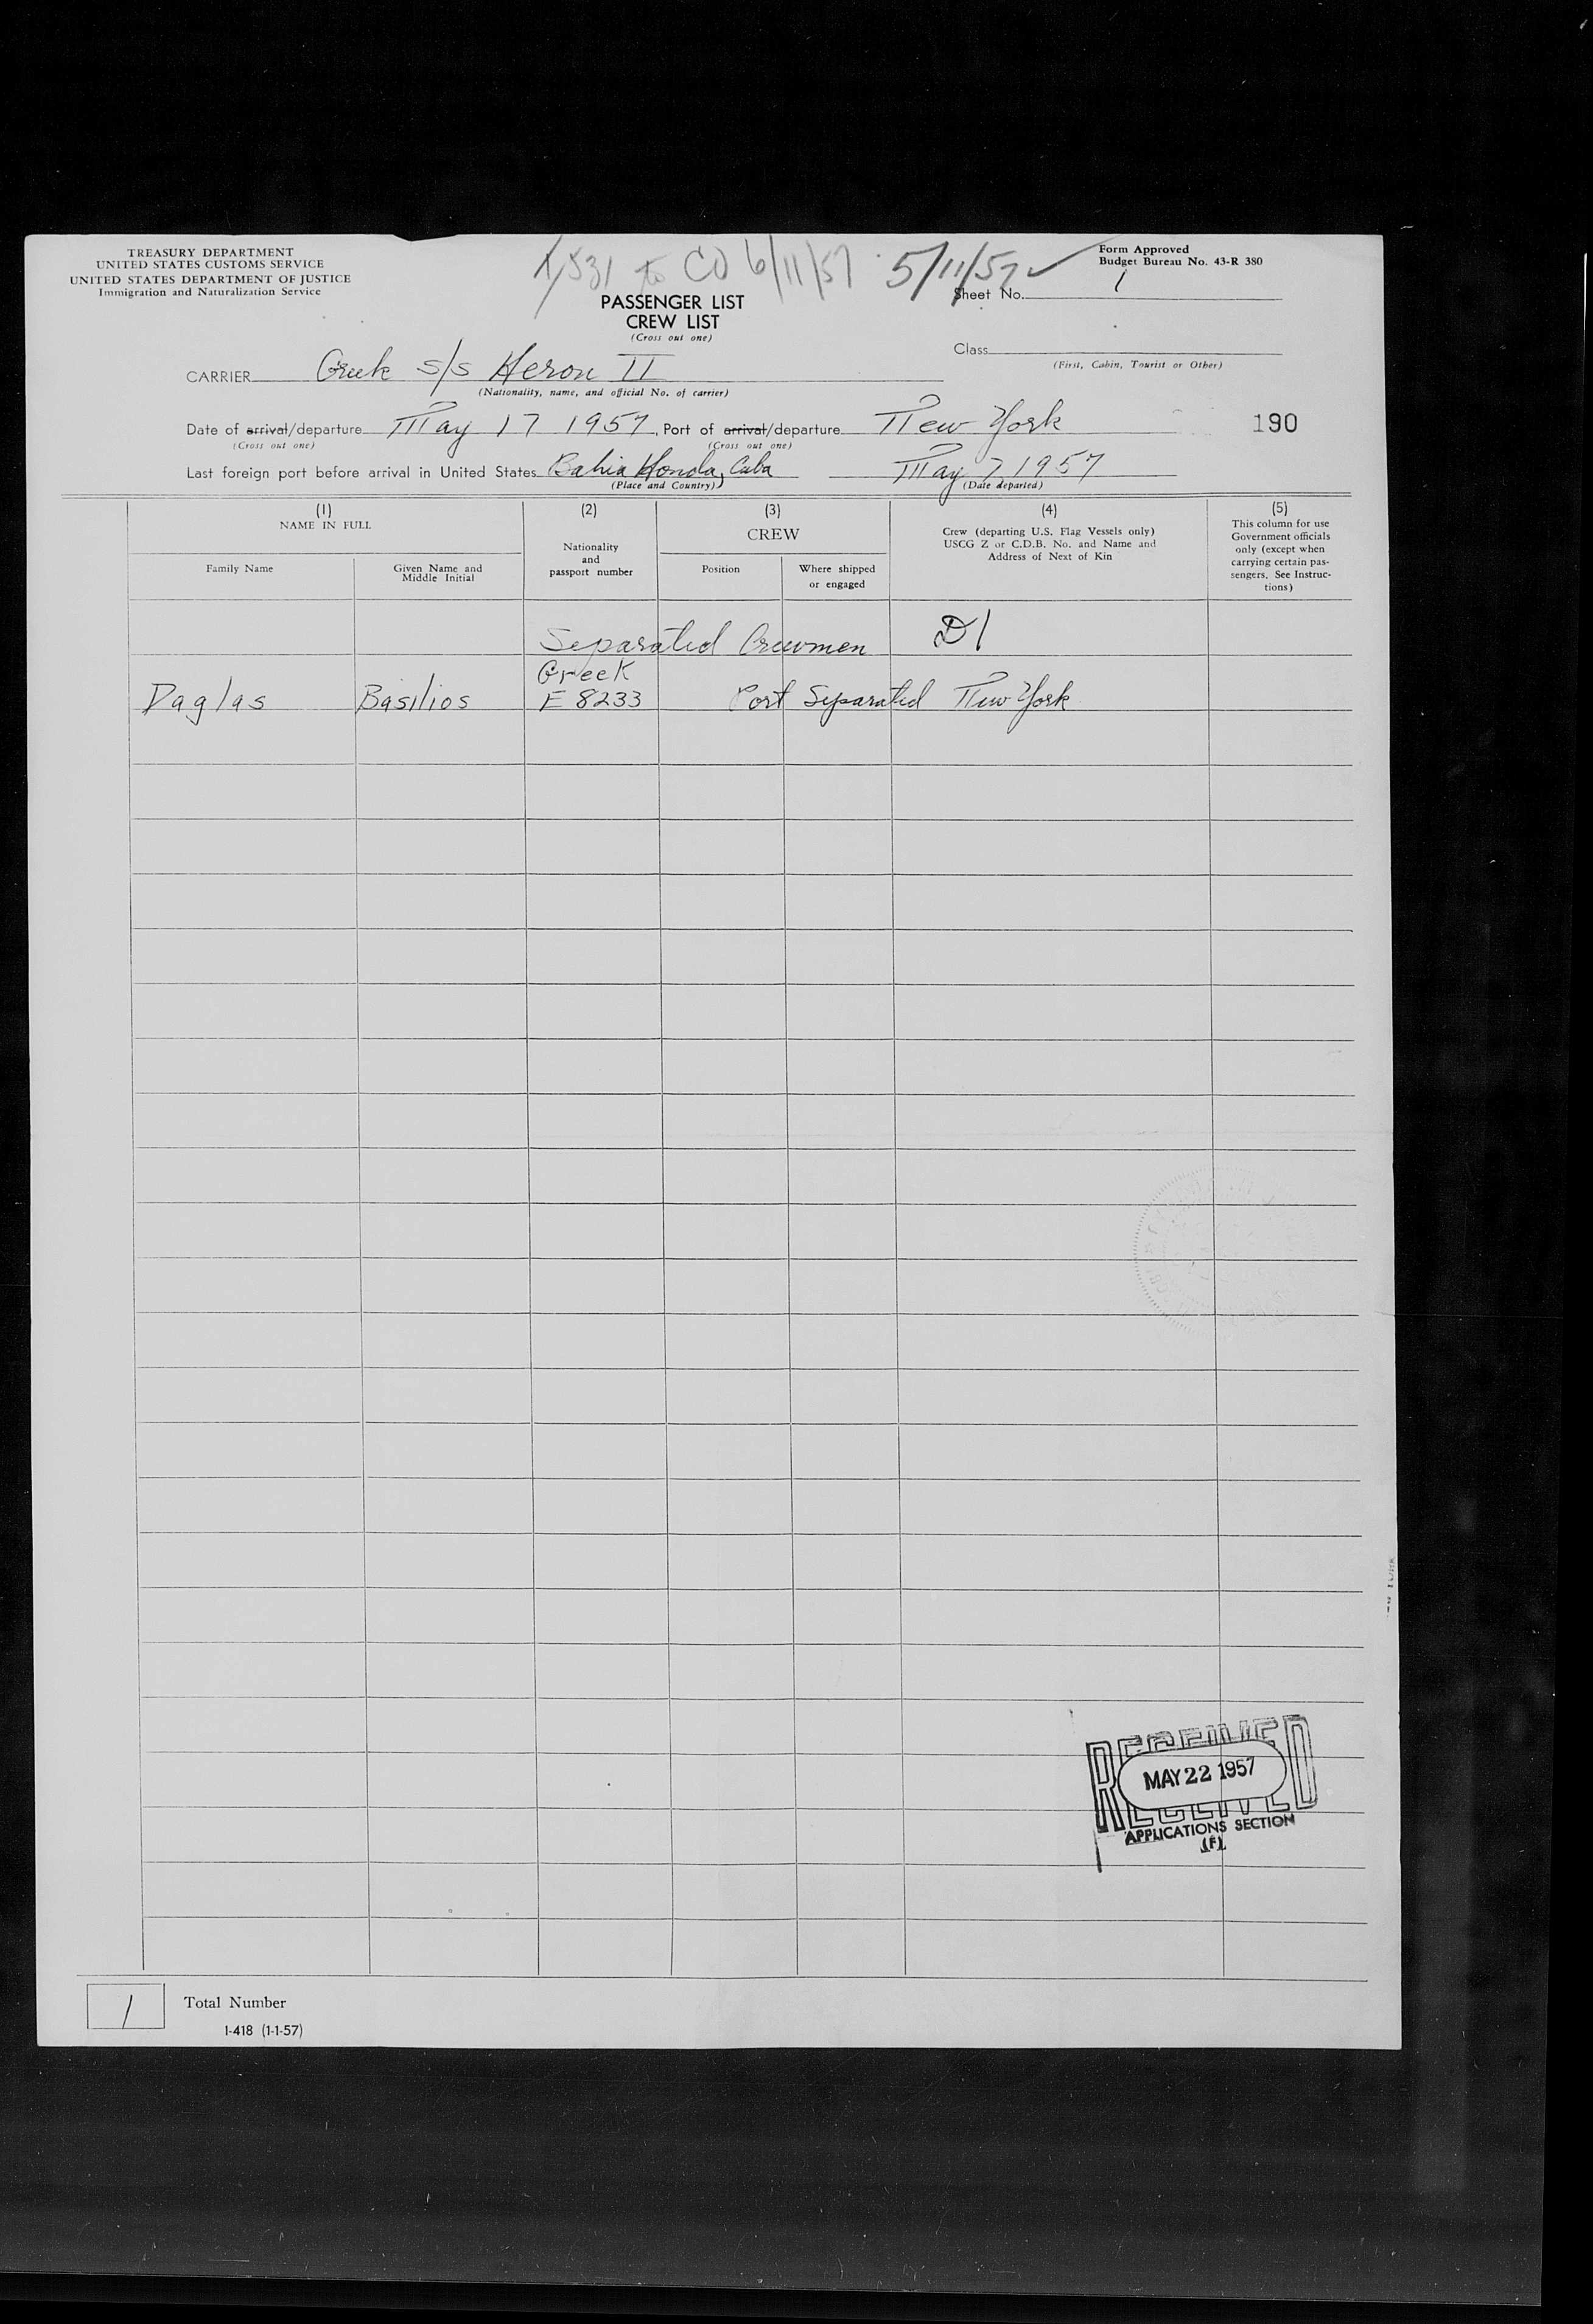 TREASURY DEPARTMENT
UNITED STATES CUSTOMS SERVICE
UNITED STATES DEPARTMENT OF JUSTICE
Immigration and Naturalization Service
to CO 6/11/57 5/11/57 ✓
Form Approved
Budget Bureau No. 43-R 380
PASSENGER LIST
CREW LIST
(Cross out one)
Sheet No. 1
Class
(First, Cabin, Tourist or Other)
CARRIER Greek S/S Heron II
(Nationality, name, and official No. of carrier)
Date of arrival/departure May 17 1957, Port of arrival/departure New York 190
(Cross out one) (Cross out one)
Last foreign port before arrival in United States Bahia Honda, Cuba May 7, 1957
(Place and Country) (Date departed)
(1)
NAME IN FULL
Family Name
Given Name and
Middle Initial
(2)
Nationality
and
passport number
(3)
CREW
Position
Where shipped
or engaged
(4)
Crew (departing U.S. Flag Vessels only)
USCG Z or C.D.B. No. and Name and
Address of Next of Kin
(5)
This column for use
Government officials
only (except when
carrying certain pas-
sengers. See Instruc-
tions)
Separated Crewmen D1
Greek
Daglas Basilios E 8233 Port Separated New York
RECEIVED
MAY 22 1957
APPLICATIONS SECTION
(F)
1 Total Number
I-418 (1-1-57)